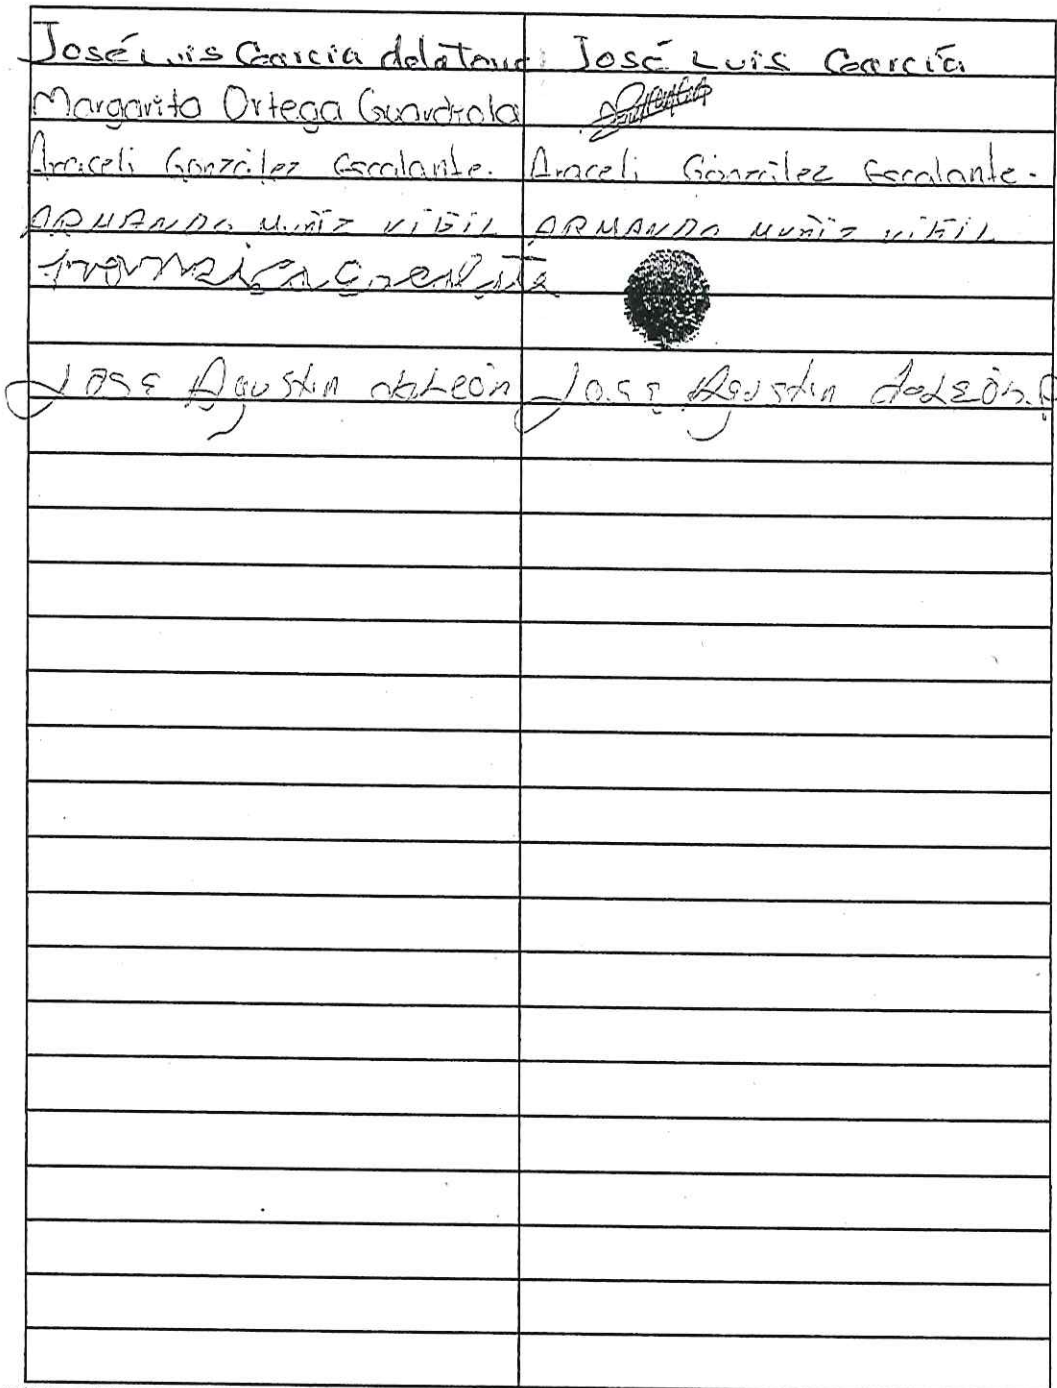 José Luis García dela Torre José Luis García
Margarito Ortega Guardiola
Araceli González Escalante. Araceli González Escalante.
ARMANDO MUÑIZ VIGIL ARMANDO MUÑIZ VIGIL
Jose Agustin deLeón Jose Agustin deLeón.